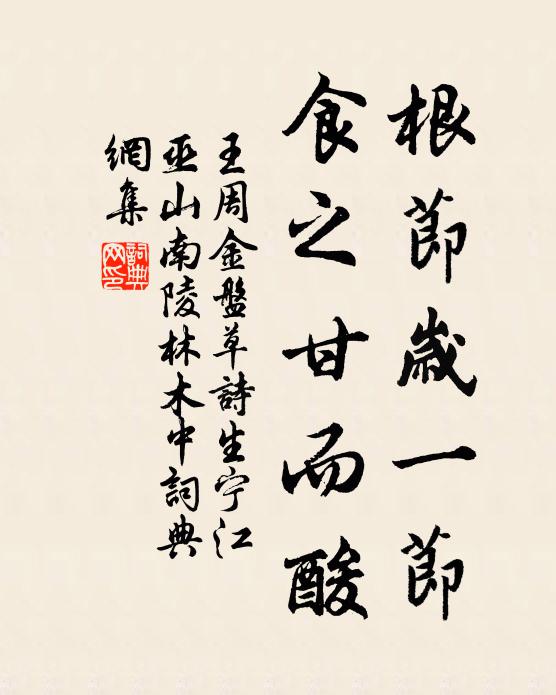 根節歲一節
食之甘而酸
王周金盤草詩生宁江
巫山南陵林木中詞典
網集
詞典網印